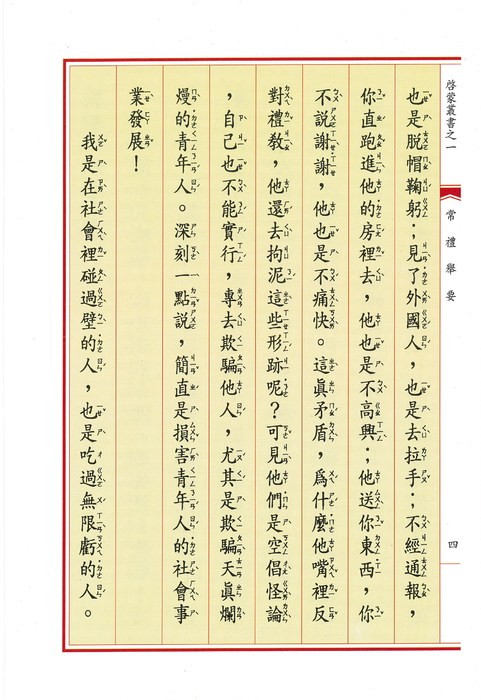 啓蒙叢書之一
常禮舉要
四
也是脫帽鞠躬；見了外國人，也是去拉手；不經通報，
你直跑進他的房裡去，他也是不高興；他送你東西，你
不說謝謝，他也是不痛快。這眞矛盾，爲什麼他嘴裡反
對禮教，他還去拘泥這些形跡呢？可見他們是空倡怪論
，自己也不能實行，專去欺騙他人，尤其是欺騙天眞爛
熳的青年人。深刻一點說，簡直是損害青年人的社會事
業發展！
我是在社會裡碰過壁的人，也是吃過無限虧的人。